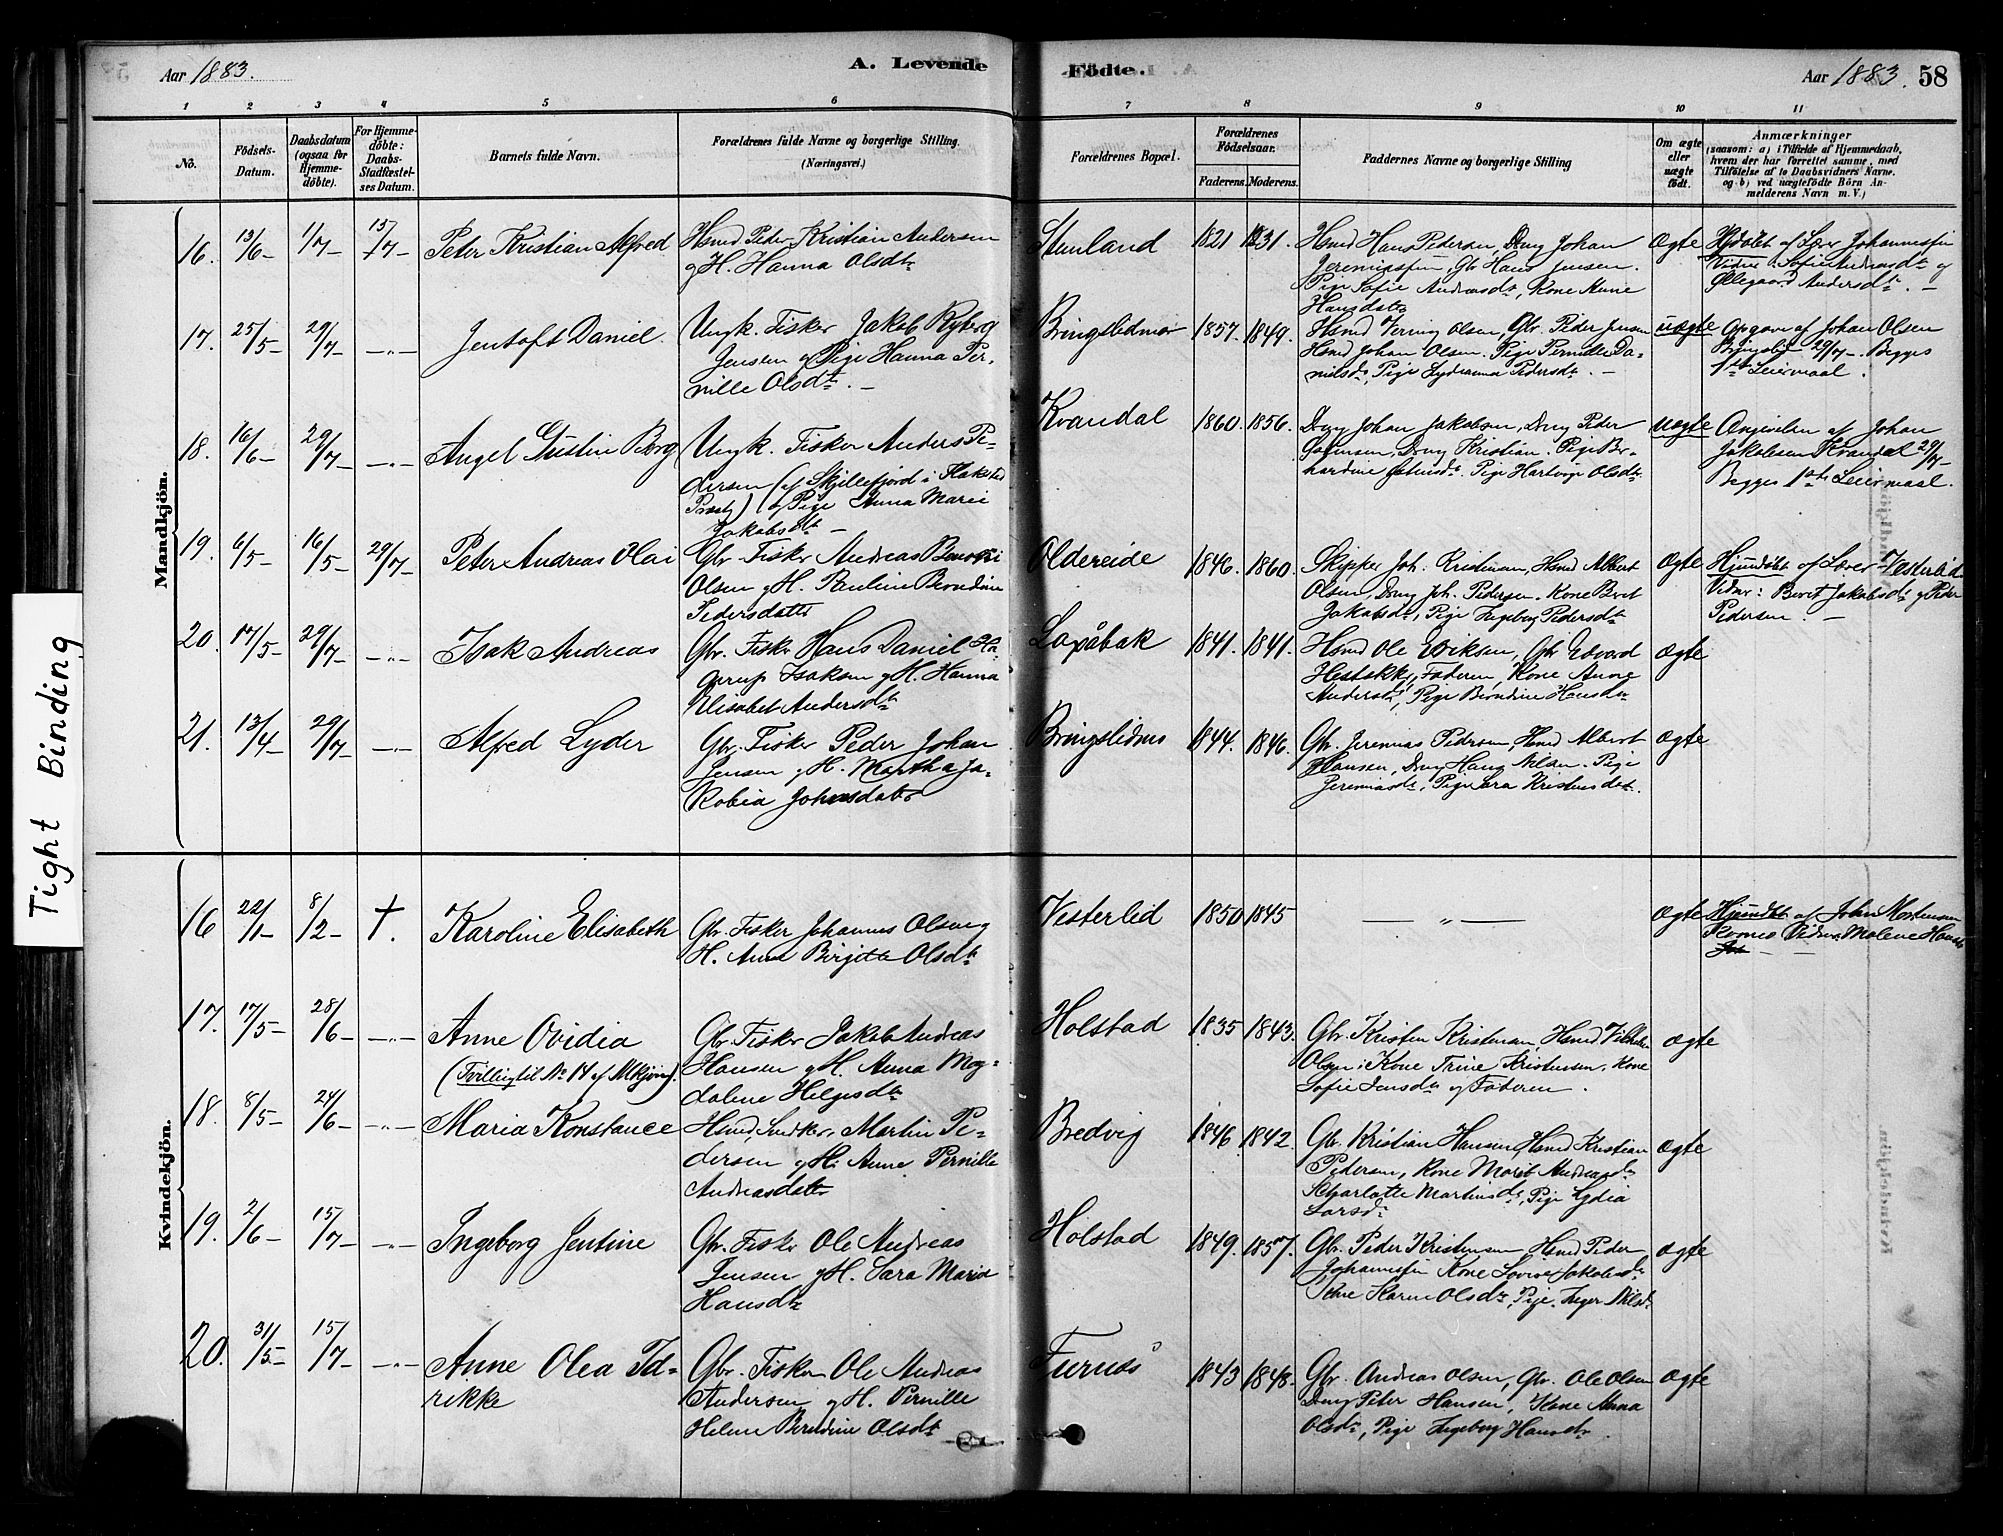 Aar 1883.
A. Levende
Födte.
Aar 1883.
58
1 2 3 4 5 6 7 8 9 10 11
Nö.
Födsels-
Datum.
Daabsdatum
(ogsaa for
Hjemme-
döbte).
For Hjemme-
döbte:
Daabs-
Stadfæstel-
ses Datum.
Barnets fulde Navn.
Forældrenes fulde Navne og borgerlige Stilling.
(Næringsvei.)
Forældrenes Bopæl.
Forældrenes
Födselsaar.
Faderens.
Moderens.
Faddernes Navne og borgerlige Stilling
Om ægte
eller
uægte
födt.
Anmærkninger
(saasom: a) i Tilfælde af Hjemmedaab,
hvem der har forrettet samme, med
Tilföielse af to Daabsvidners Navne.
og b) ved uægtefödte Börn An-
melderens Navn m. V.)
Tight Binding
Mandkjön.
16. 13/6- 1/7- 15/7- Peter Kristian Alfred
Hsmd Peder Kristian Andersen
g H. Hanna Olsdtr
Stenland 1821 1831.
Hsmd Hans Pedersen, Dreng Johan
Jeremiassen, Gbr Hans Jensen.
Pige Sofie Andreasdtr, Kone Anne
Hansdatter
Ægte
Hjdöbt af Lærer Johannessen
Vidner: Sofie Andreasdtr og
Ellegaard Andersdtr. -
17. 25/5- 29/7- -"- Jentoft Daniel.
Ungk. Fisker Jakob Ryberg
Jensen og Pige Hanna Per-
nille Olsdtr. -
Bringslidmar 1857. 1849.
Hsmd Olsen, Gbr. Peder Jensen
Hsmd Johan Olsen. Pige Pernille Da-
nielsdtr, Pige Lydianna Pedersdtr. -
uægte
Opgave af Johan Olsen
Bringslid 29/7-. Begges
1ste Leiermaal.
18. 16/6- 29/7- -"- Angel Gustin Borg
Ungk. Fisker Anders Pe-
dersen (af Skjellefjord i Flakstad
Præstg) og Pige Anna Marie
Jakobsdtr -
Kvandal 1860. 1856.
Dreng Johan Jakobsen, Dreng Peder
Johnsen, Dreng Kristian. Pige Ber-
hardine Pige Hartvige Olsdtr.
uægte
Angivelsen af Johan
Jakobsen Kvandal 29/7-
Begges 1ste Leiermaal.
19. 6/5- 16/5- 29/7- Peter Andreas Olai
Gbr. Fisker Andreas Benoni
Olsen g H. Pauline Berndine
Pedersdatter
Oldereide 1846. 1860.
Skipper Joh. Kristensen, Hsmd Albert
Olsen, Dreng Joh. Pedersen. Kone Beret
Jakobsdtr, Pige Ingeborg Pedersdtr
Ægte
Hjemdöbt af Lærer Vesterlid
Vidner: Beret Jakobsdtr g Peder
Pedersen. -
20. 17/5- 29/7- -"- Isak Andreas
Gbr. Fisker Hans Daniel Ha-
gerup Isaksen g H. Hanna
Elisabet Andersdtr
Laxåbak 1841. 1841.
Hsmd Ole Eriksen, Gbr Edvard
Faderen, Kone Anne
Andersdtr, Pige Berndine Hansdtr
Ægte
21. 13/4- 29/7- -"- Alfred Lyder
Gbr. Fisker Peder Johan
Jensen g H. Martha Ja-
kobia Johnsdatter
Bringslidnes 1844. 1846.
Gbr. Jeremias Pedersen, Hsmd Albert
Hansen, Dreng Hans Nilsen. Pige
Jeremiasdtr, Pige Sara Kristensdat.
Ægte
Kvindekjön.
16 22/1- 8/2- †. Karoline Elisabeth
Gbr. Fisker Johannes Olsen g
H. Anne Birgitte Olsdtr
Vesterlid 1850 1845
— " —
Ægte
Hjemdöbt af John Mortensen
Vidner Molene
17. 17/5- 28/6- -"- Anne Ovidia
(Tvilling til No 14 af Mkjön).
Gbr. Fisker Jakob Andreas
Hansen g H. Anna Mag-
dalene Helgesdtr
Holstad 1835 1843.
Gbr. Kristen Kristensen, Hsmd Vilhelm
Olsen, Kone Trine Kristensen, Kone
Sofie Jensdtr og Faderen.
Ægte
18. 8/5- 24/6- -"- Maria Konstance
Hsmd, Snedker, Martin Pe-
dersen g H. Anne Pernille
Andreasdatter
Bredvig 1846. 1842.
Gbr. Kristian Hansen, Hsmd Kristian
Pedersen, Kone Marit Andreasdtr
Scharlotte Martinsdtr, Pige Lydia
Larsdtr
Ægte
19. 2/6- 15/7- -"- Ingeborg Jentine
Gbr. Fisker Ole Andreas
Jensen g H. Sara Maria
Hansdtr
Holstad 1849. 1857.
Gbr. Peder Kristensen, Hsmd Peder
Johannessen Kone Lovise Jakobsdtr
Kone Karen Olsdtr, Pige. Inger Nilsdtr
Ægte
20. 31/5- 15/7- -"- Anne Olea Id-
rikke
Gbr. Fisker Ole Andreas
Andersen g H. Pernille
Helene Berndine Olsdtr
Furnes 1843 1848.
Gbr. Andreas Olsen, Gbr. Ole Olsen
Dreng Peter Hansen, Kone Anna
Olsdtr, Pige Ingeborg Hansdtr.
Ægte